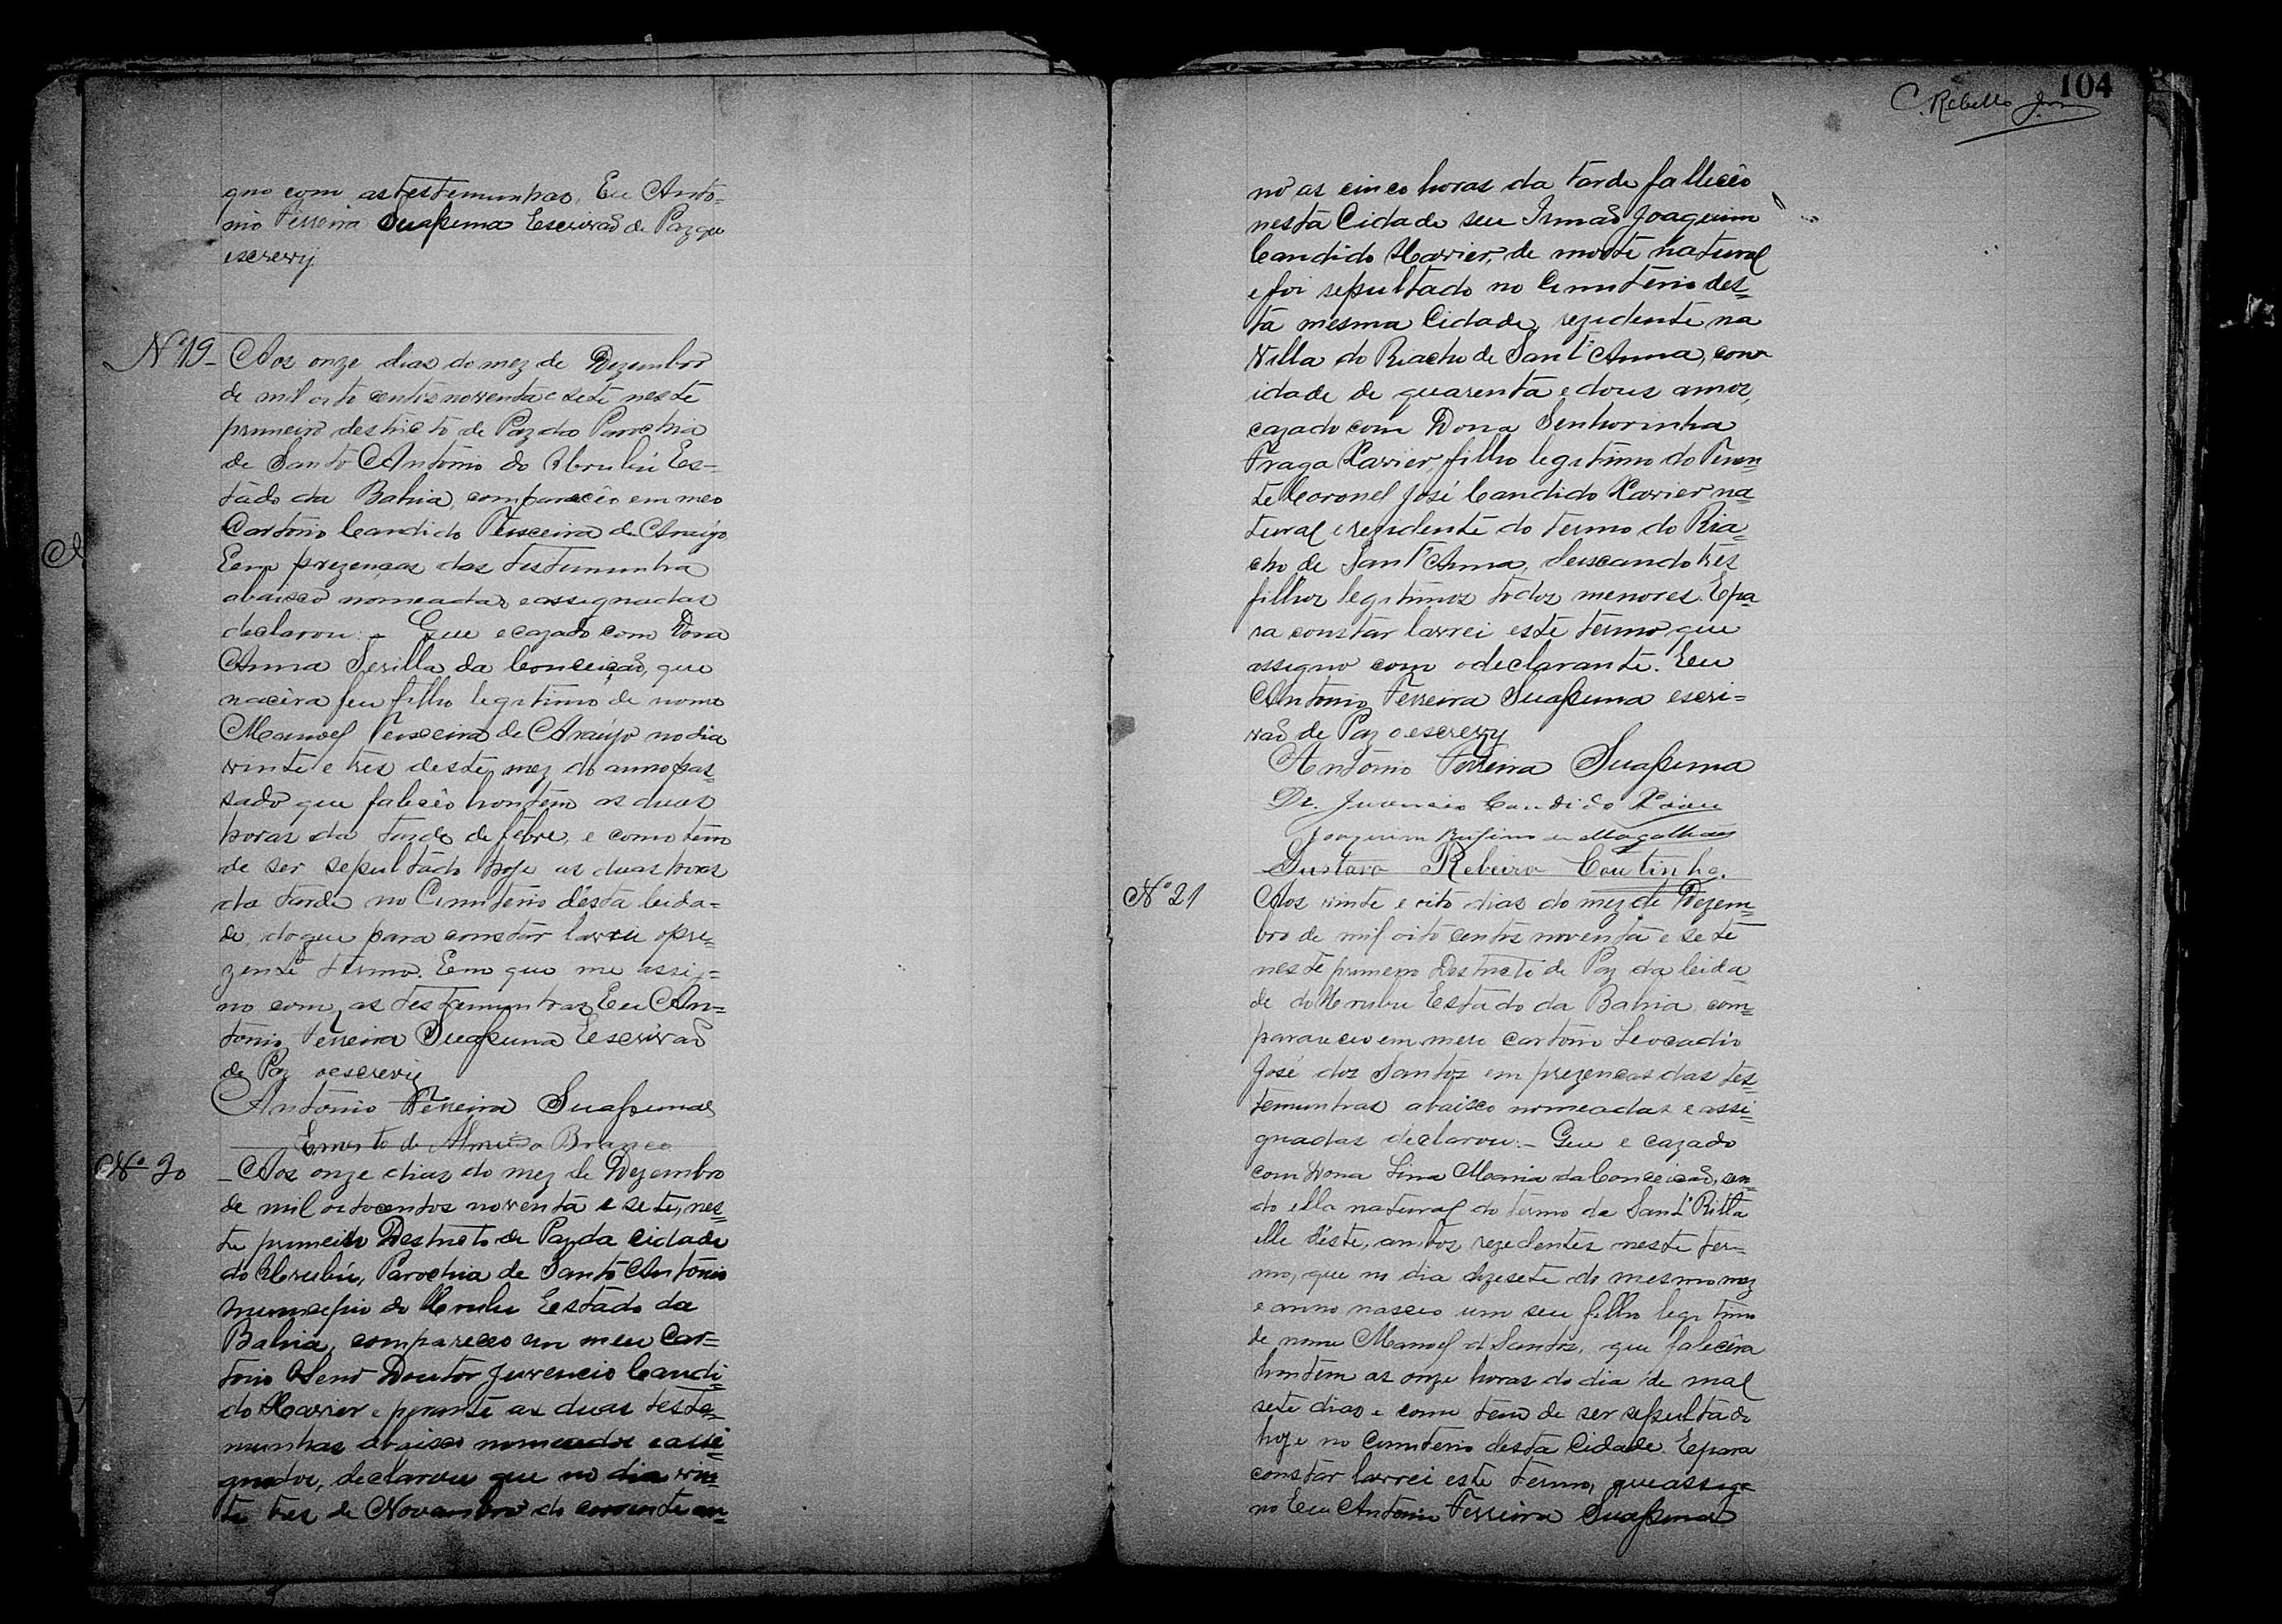 gno com as testemunhas. Eu Anto=
nio Ferreira Suassuna Escrivaõ de Paz que
escrevy.
Nº 19 - Aos onze dias do mez de Dezembro
de mil oito centos noventa e sete neste
primeiro destricto de Paz da Parochia
de Santo Antonio do Urubú Es=
tado da Bahia, compareceo em meo
Cartorio Candido Teixeira de Araujo
Eem prezenças das testimunha
abaixo nomeadas eassignadas
declarou: - Que e cazado com Dona
Anna Serilla da Conceiçaõ, que
nacêra seu filho legitimo de nome
Manoel Teixeira de Araujo no dia
vinte e tres deste mez do anno pas=
sado que falecêo hontem as duas
horas da tarde de febre, e como tem
de ser sepultado hoje as duas horas
da tarde no Cimiterio désta Cida=
de, do que para constar lavrei opre=
zente termo. Eem que me assig=
no com as testemunhas Eu An=
tonio Ferreira Suassuna Escrivaõ
de Paz oescreviy
Antonio Ferreira Suassuna
Ernesto de Almeida Branco
Nº 20 - Aos onze dias do mez de Dezembro
de mil oitocentos noventa e sete, nes=
te primeiro Destricto de Paz da cidade
do Urubú, Parochia de Santo Antonio
municipio do Urubu Estado da
Bahia, compareceo em meu Car=
torio OSenr Doutor Juvencio Candi=
do Xavier e perante as duas teste=
munhas abaixo nomeados eassi=
gnados, declarou que no dia vin=
te tres de Novembro do corrente an=
104
C. Rebello Jor
no as cinco horas da tarde fallecêo
nesta Cidade seu Irmaõ Joaquim
Candido Xavier, de morte natural
e foi sepultado no Cimiterio des=
ta mesma Cidade, rezidente na
Villa do Riacho de Sant'Anna, com
idade de quarenta e dous annos,
cazado com Dona Senhorinha
Fraga Xavier, filho legitimo do Tenen=
te Coronel José Candido Xavier na=
tural e rezidente do termo do Ria=
cho de Sant'Anna, deixando tres
filhos legitimos todos menores. Epa=
ra constar lavrei este termo que
assigno com odeclarante. Eeu
Antonio Ferreira Suassuna escri=
vaõ de Paz o escrevy
Antonio Ferreira Suassuna
Dr. Juvencio Candido Xavier
Joaquim Rufino de Magalhães
Gustavo Ribeiro Coutinho.
Nº 21 Aos vinte e oito dias do mez de Dezem=
bro de mil oito centos noventa e sete
neste primeiro Destricto de Paz da Cida
de do Urubu Estado da Bahia, com=
pareceu em meu cartorio Leocadio
José dos Santos em prezencas das tes=
temunhas abaixo nomeadas e assi=
gnadas declarou: - Que e cazado
com Dona Lina Maria da Conceicaõ, sen=
do ella natural do termo de Sant'Ritta
elle déste, ambos rezidentes neste ter=
mo, que no dia dezesete do mesmo mez
e anno nasceo um seu filho legitimo
de nome Manoel d Santos, que falecêra
hontem as onze horas do dia de mal
sete dias e como tem de ser sepultado
hoje no Cimiterio desta Cidade. Epara
constar lavrei este termo, queassig=
no Eeu Antonio Ferreira Suassuna